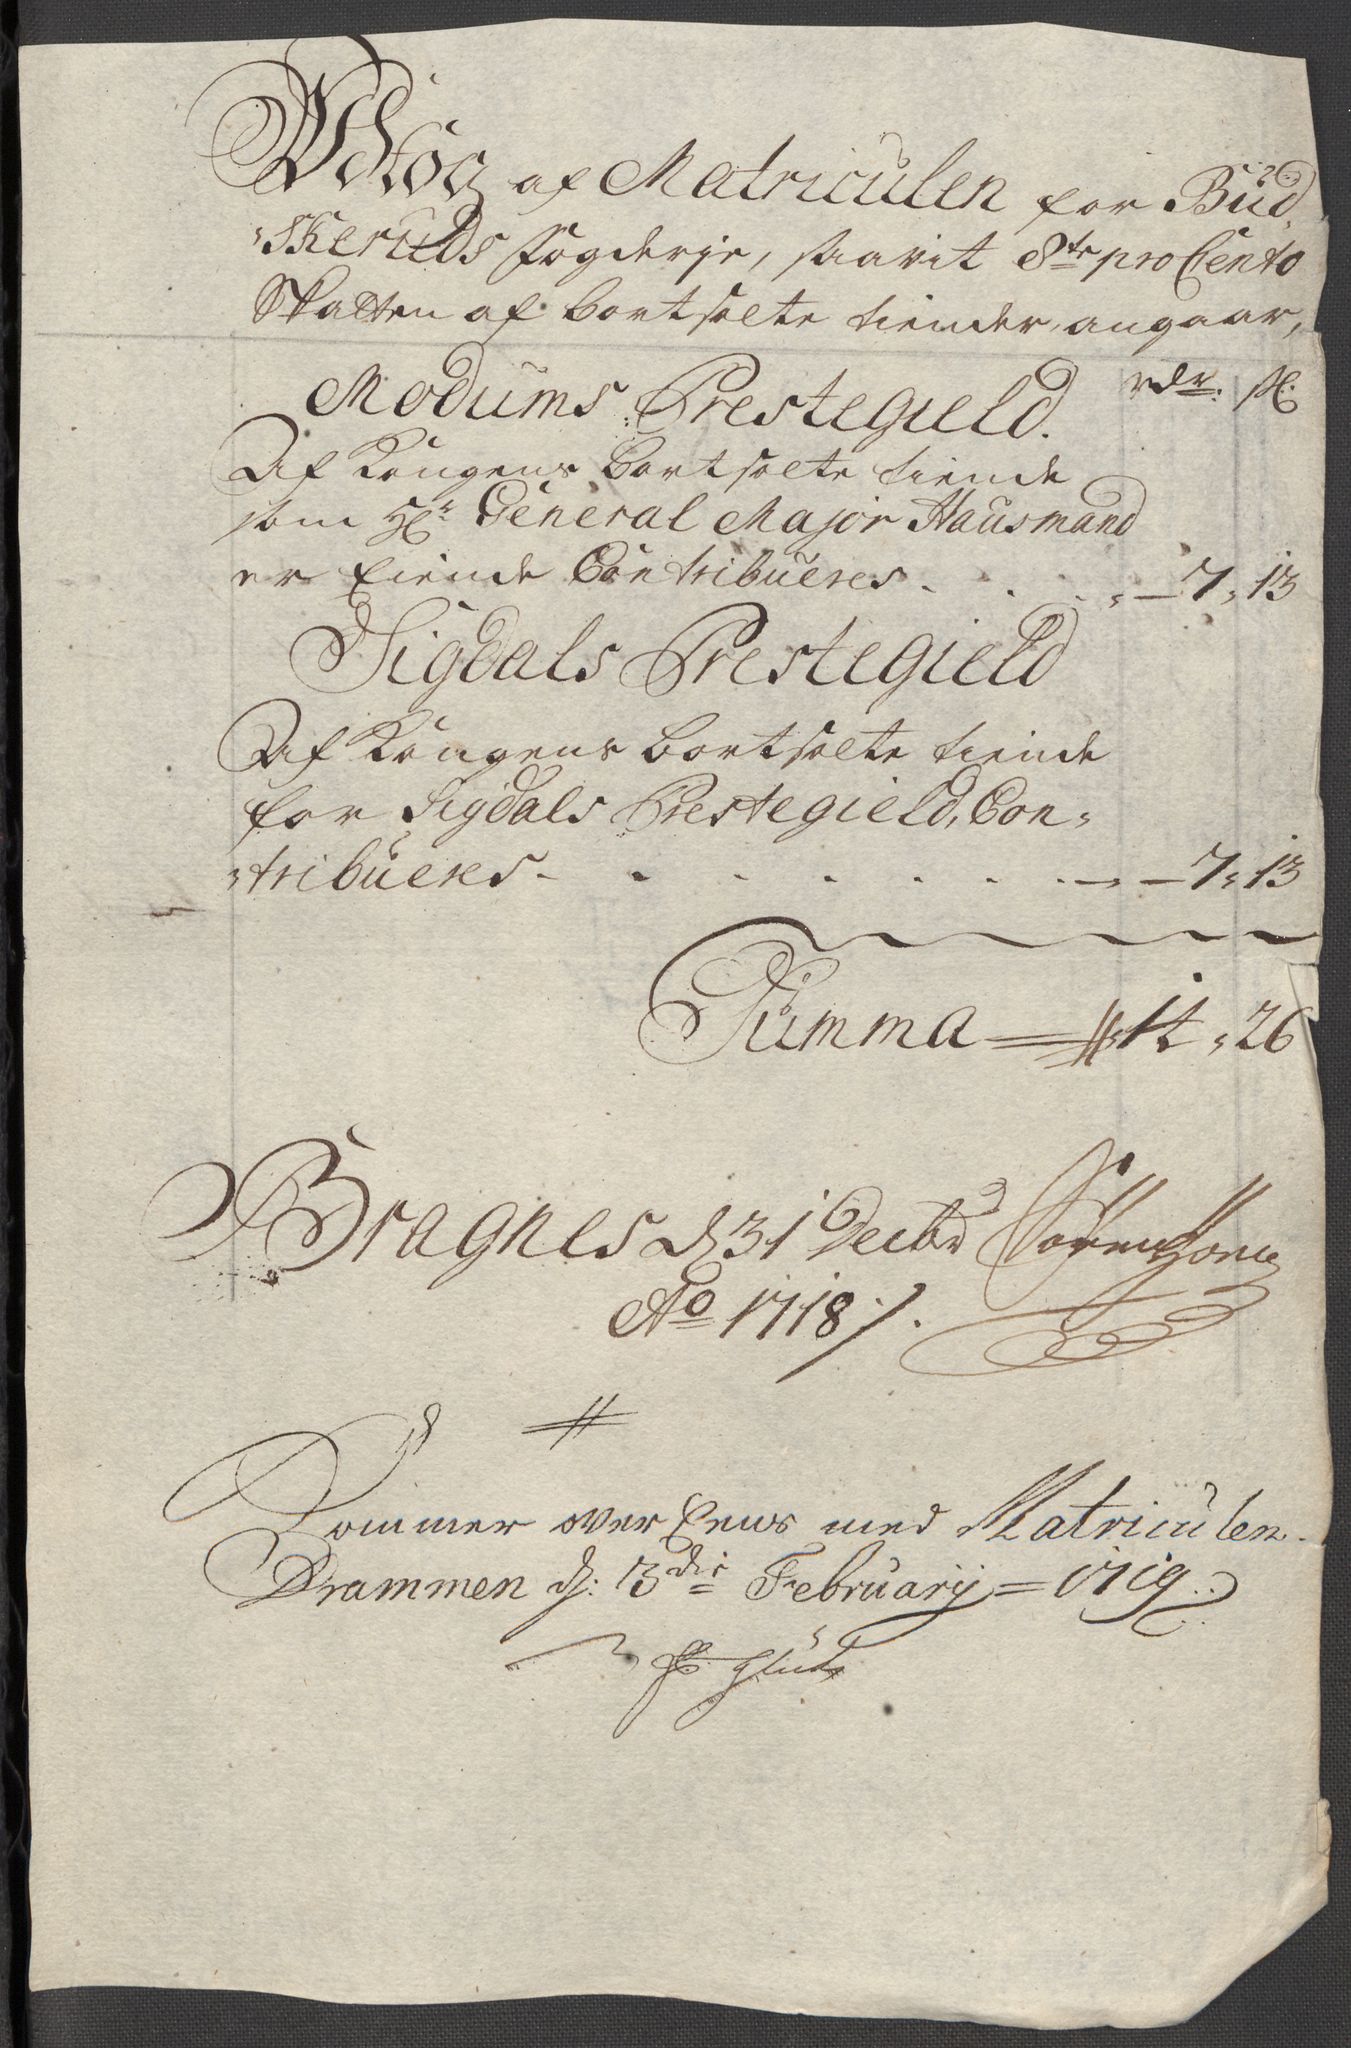 Udtog af Matriculen for Bud¸
¸skeruds fogderje, saavit 8te pro Cento
Skatten af bortsolte tiender, angaar,
Modums Prestegield. rdr. sk:
Af Kongens bortsolte tiende
som Hr. General Major Hausmand
er Eiende Contribueres. . . . — 7, 13
Sigdals Prestegield
Af Kongens bortsolte tiende
for Sigdals Prestegield, Con¸
¸tribueres . . . . . . . — 7, 13
Summa — 14, 26
Bragnes d 31 Decbr Søren
Ao 1718 /.
Kommer over Eens med Matriculen.
Drammen d: 13die Februarij = 1719.